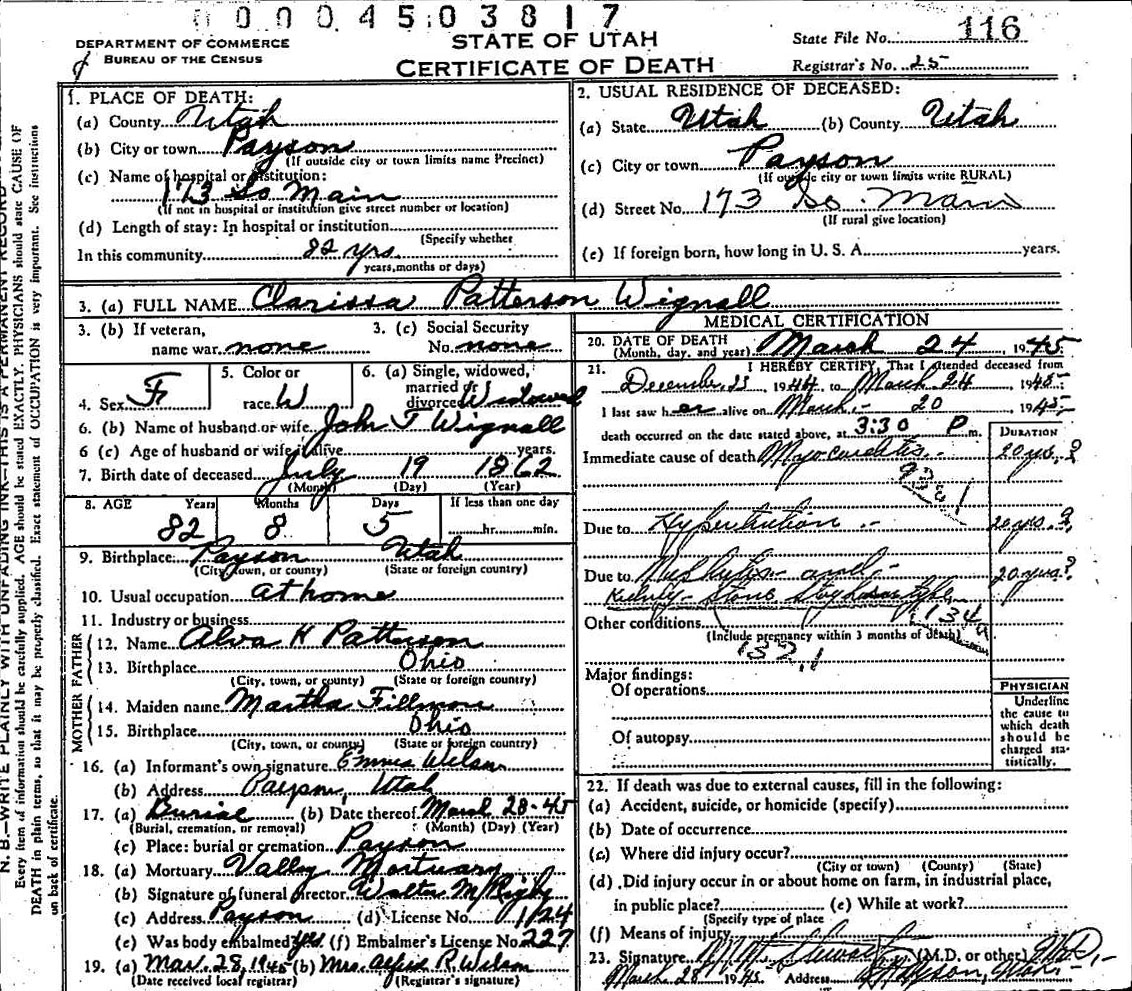 00004503817
DEPARTMENT OF COMMERCE
BUREAU OF THE CENSUS
STATE OF UTAH
CERTIFICATE OF DEATH
State File No. 116
Registrar's No. 25
N. B.—WRITE PLAINLY WITH UNFADING INK—THIS IS A PERMANENT RECORD
Every item of information should be carefully supplied. AGE should be stated EXACTLY. PHYSICIANS should state CAUSE OF
DEATH in plain terms, so that it may be properly classified. Exact statement of OCCUPATION is very important. See instructions
on back of certificate.
1. PLACE OF DEATH:
(a) County Utah
(b) City or town Payson
(If outside city or town limits name Precinct)
(c) Name of hospital or institution:
173 So Main
(If not in hospital or institution give street number or location)
(d) Length of stay: In hospital or institution
(Specify whether
In this community 82 yrs
years, months or days)
2. USUAL RESIDENCE OF DECEASED:
(a) State Utah (b) County Utah
(c) City or town Payson
(If outside city or town limits write RURAL)
(d) Street No. 173 So. Main
(If rural give location)
(e) If foreign born, how long in U. S. A. years.
3. (a) FULL NAME Clarissa Patterson Wignall
3. (b) If veteran,
name war none
3. (c) Social Security
No. none
4. Sex F
5. Color or
race W
6. (a) Single, widowed,
married or
divorced Widowed
6. (b) Name of husband or wife John T Wignall
6 (c) Age of husband or wife if alive years.
7. Birth date of deceased July 19 1862
(Month) (Day) (Year)
8. AGE Years Months Days If less than one day
82 8 5 hr. min.
9. Birthplace Payson Utah
(City, town, or county) (State or foreign country)
10. Usual occupation at home
11. Industry or business
FATHER
12. Name Alva H Patterson
13. Birthplace Ohio
(City, town, or county) (State or foreign country)
MOTHER
14. Maiden name Martha Fillmore
15. Birthplace Ohio
(City, town, or county) (State or foreign country)
16. (a) Informant's own signature Wilson
(b) Address Payson, Utah
17. (a) Burial (b) Date thereof March 28-45
(Burial, cremation, or removal) (Month) (Day) (Year)
(c) Place: burial or cremation Payson
18. (a) Mortuary Valley Mortuary
(b) Signature of funeral director Walter M Rigby
(c) Address Payson (d) License No. 1124
(e) Was body embalmed? yes (f) Embalmer's License No. 227
19. (a) Mar. 28, 1945 (b) Mrs. Alfred R. Wilson
(Date received local registrar) (Registrar's signature)
MEDICAL CERTIFICATION
20. DATE OF DEATH
(Month, day, and year) March 24, 1945
21. I HEREBY CERTIFY, That I attended deceased from
December 23, 1944, to March 24 1945
I last saw her alive on March 20, 1945
death occurred on the date stated above, at 3:30 P m.
DURATION
Immediate cause of death Myocarditis 20 yrs. ?
93d1
Due to Hypertention 20 yrs. ?
Due to Nephritis and 20 years?
Kidney Stone
134a
Other conditions
(Include pregnancy within 3 months of death)
132.1
Major findings:
Of operations
Of autopsy
PHYSICIAN
Underline
the cause to
which death
should be
charged sta-
tistically.
22. If death was due to external causes, fill in the following:
(a) Accident, suicide, or homicide (specify)
(b) Date of occurrence
(c) Where did injury occur?
(City or town) (County) (State)
(d) Did injury occur in or about home on farm, in industrial place,
in public place? (e) While at work?
(Specify type of place
(f) Means of injury
23. Signature (M.D. or other) M.D.
March 28 1945 Address Payson, Utah